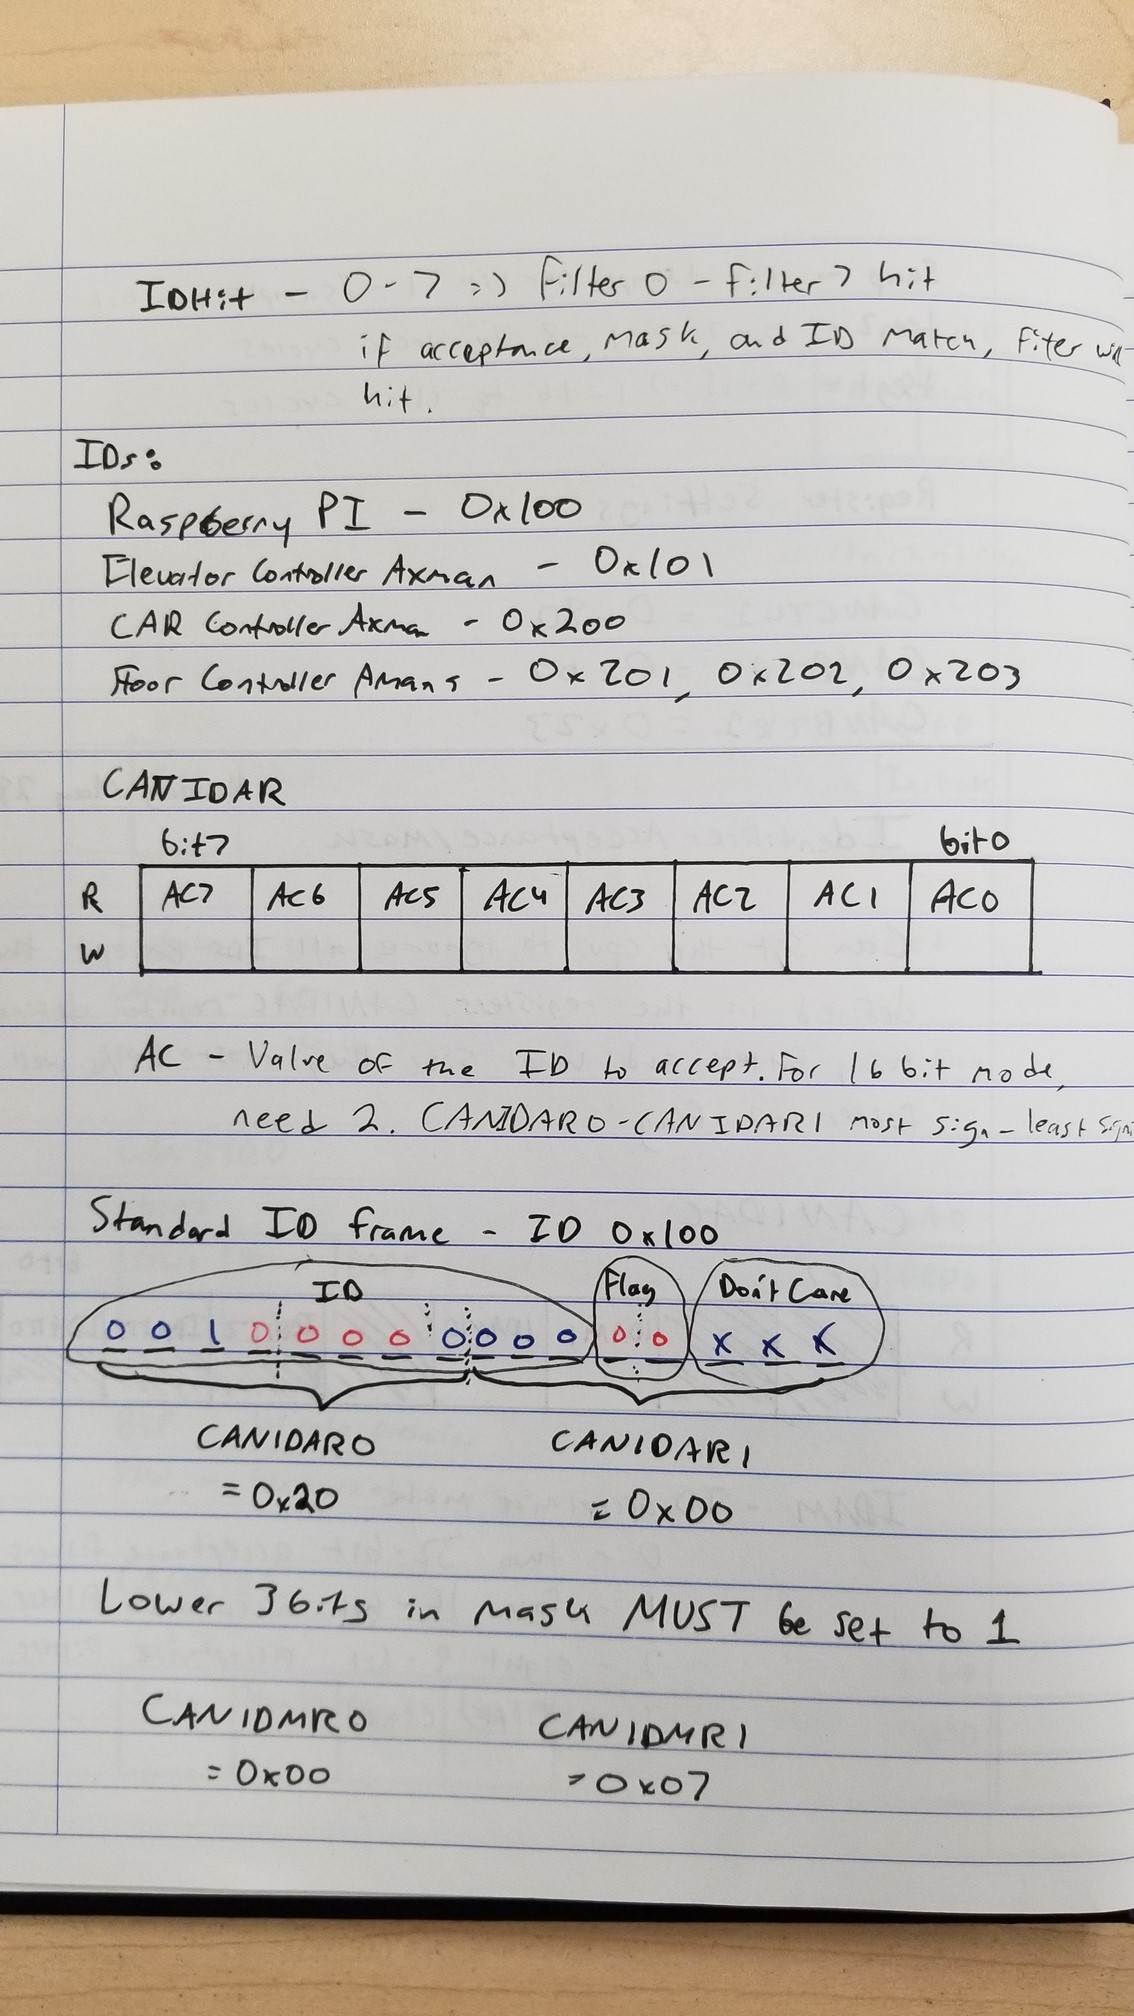 IDHit - 0-7 => filter 0 - filter 7 hit
if acceptance, mask, and ID match, Fiter
hit.
IDs:
Raspberry PI - 0x100
Elevator Controller Axman - 0x101
CAR Controller Axman - 0x200
Floor Controller Amans - 0x201, 0x202, 0x203
CANIDAR
bit7 bit0
R AC7 AC6 AC5 AC4 AC3 AC2 AC1 AC0
W
AC - Value of the ID to accept. For 16 bit mode,
need 2. CANIDAR0-CANIDAR1 most sign - least
Standard ID frame - ID 0x100
ID Flag Don't Care
0 0 1 0 0 0 0 0 0 0 0 0 0 x x x
CANIDAR0 CANIDAR1
= 0x20 = 0x00
Lower 3bits in mask MUST be set to 1
CANIDMR0 CANIDMR1
= 0x00 = 0x07